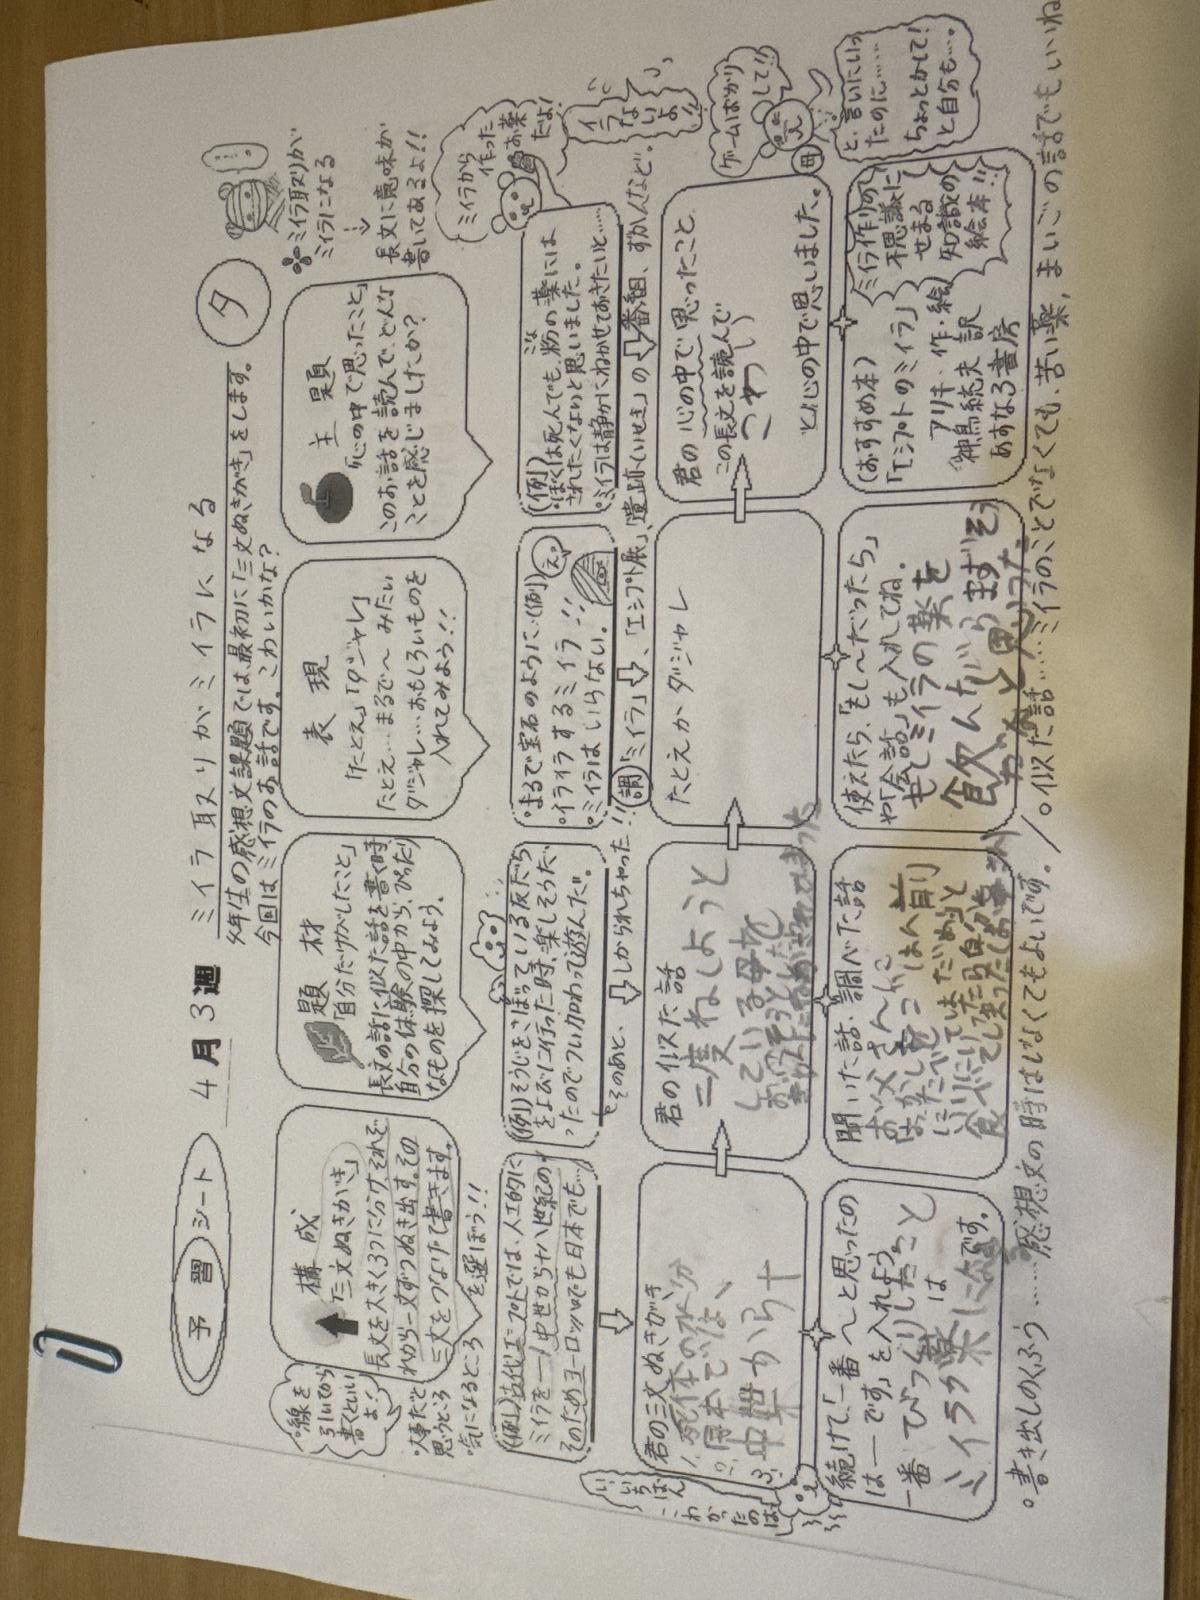 予習シート
4月3週
ミイラ取りがミイラになる
タ
4年生の感想文課題では、最初に「三文ぬきがき」をします。
今回はミイラのお話です。こわいかな?
ミイラ取りが
ミイラになる
↓
長文に意味が
書いてあるよ!!
構成
「三文ぬきがき」
長文を大きく3つに分け、それぞ
れから一文ずつぬき出す。その
三文をつなげて書きます。
線を
引いてから
書くといい
よ♪
・大事だと
思うところ
・気になるところ
を選ぼう!!
題材
「自分だけがしたこと」
長文の話に似た話を書く時
自分の体験の中から、ぴったり
なものを探してみよう。
表現
「たとえ」「ダジャレ」
たとえ…まるで〜みたい
ダジャレ…おもしろいものを
入れてみよう!!
主題
「心の中で思ったこと」
このお話を読んで、どんな
ことを感じましたか?
(例)古代エジプトでは、人工的に
ミイラを――/中世から十八世紀の
そのためヨーロッパでも日本でも…
(例)そうじをさぼっている友だち
をよびに行った時、楽しそうだ
ったのでつい加わって遊んだ。
そのあと、しかられちゃった!!
・まるで宝石のように…(例)
・イライラするミイラ!!
・ミイラはいらない。
え。
(例)
・ぼくは死んでも、粉の薬には
こな
されたくないと思いました。
・ミイラは静かにねかせておきたいと…
ミイラから
作った
お薬
だよ!
イラ
ない
よ!!
調「ミイラ」、「エジプト展」、遺跡(いせき)の番組、ずかんなど。
君の三文ぬきがき
1.死体の水分
2.日本では、
3.中世から十
君の似た話
二度ねしようと
している母を
たとえかダジャレ
君の心の中で思ったこと
この長文を読んで
こわい
と心の中で思いました。
ゲームばかり
して!!
母
と、言いにいっ
たのに……
ちょっとかして!
と自分も…。
いちばん
こわかったのは
続けて、「一番〜と思ったの
は――です。」を入れよう。
一番びっくりしたこと
は
ミイラが薬になるです。
聞いた話、調べた話
使えたら、「もし〜だったら」
や「会話」も入れてね。
もしミイラの薬を
飲んだらまずそ
だなと思った
(おすすめ本)
「エジプトのミイラ」
アリキ・作・絵
神鳥統夫 訳
あすなろ書房
ミイラ作りの
不思議に
せまる
知識の
絵本!!
○書き出しのくふう……感想文の時はしなくてもよいです。/○似た話……ミイラのことでなくても、苦い薬、まいごの話でもいいね